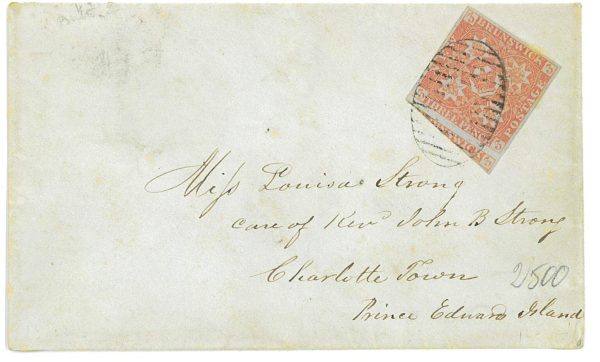 BRUNSWICK
THREE PENCE
POSTAGE
3
3
3
Miss Louisa Strong
care of Revd John B Strong
Charlotte Town
2500
Prince Edward Island